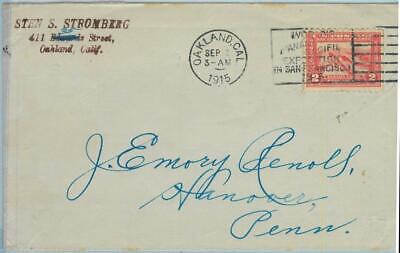 STEN S. STROMBERG
411 Street,
Oakland, Calif.
OAKLAND, CAL.
SEP
3-AM
1915
WORLD'S
PANAMA PACIFIC
EXPOSITION
IN SAN FRANCISCO
2 2
J. Emory Renolls,
Hanover,
Penn.